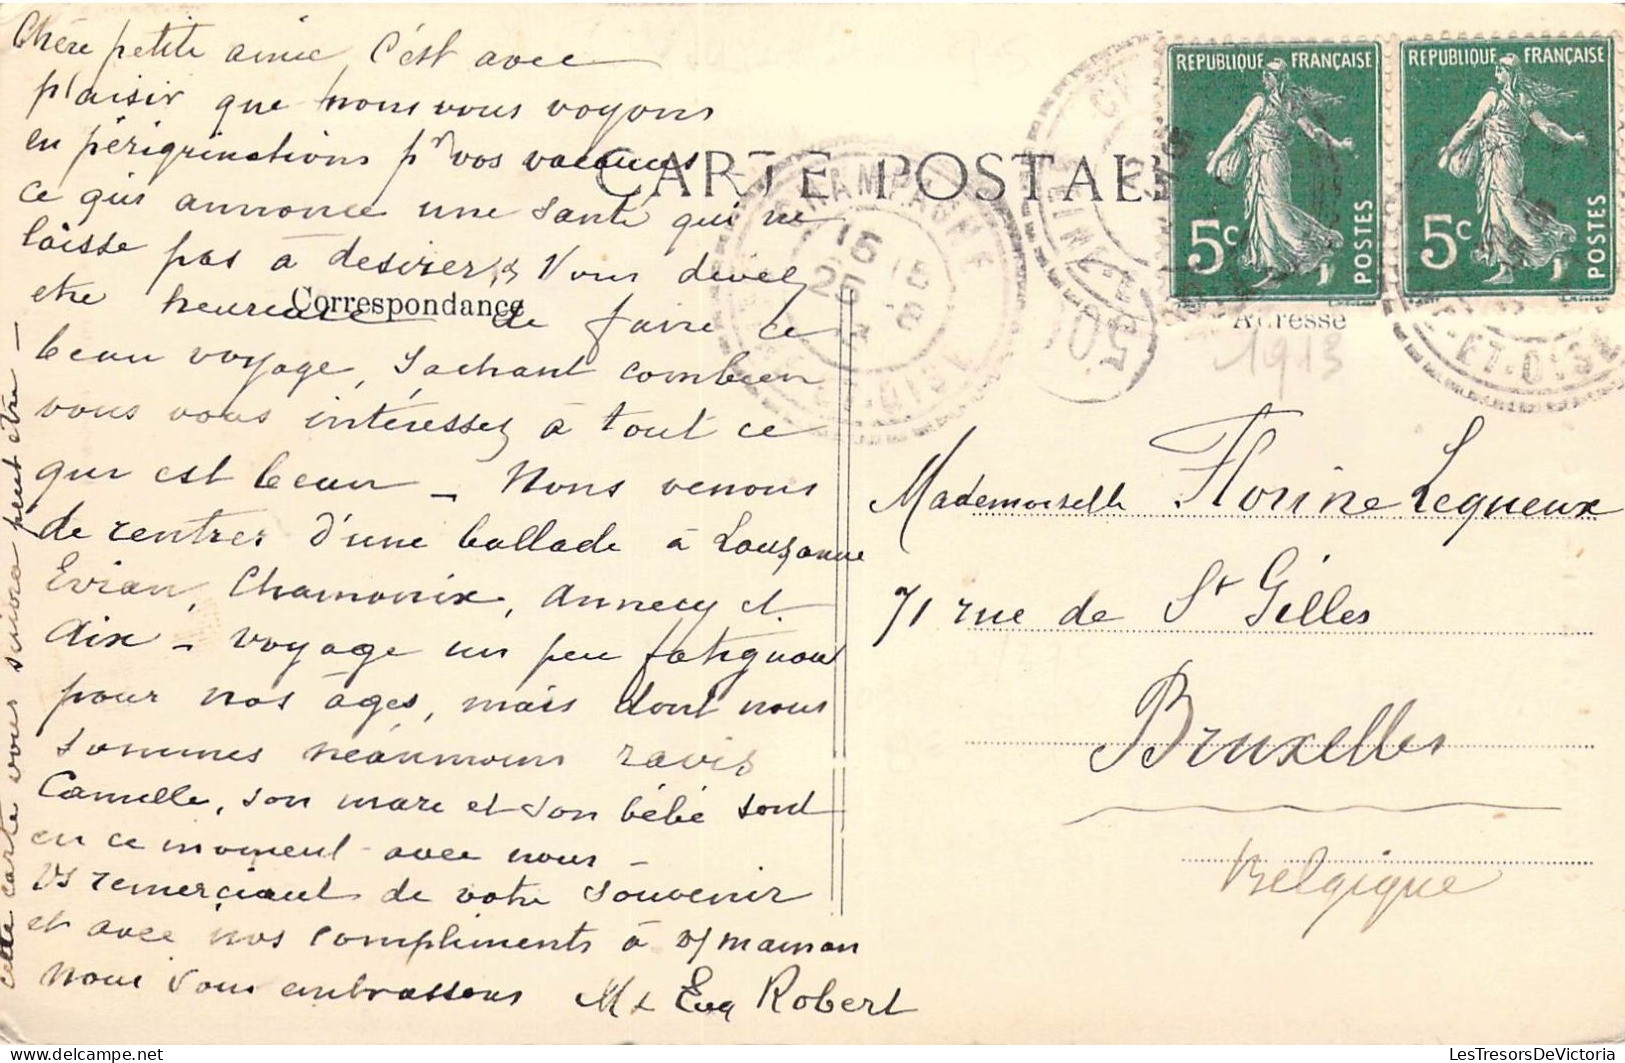 Chère petite amie, C'est avec
plaisir que nous vous voyons
en périgrinations pr vos vacances
ce qui annonce une santé qui ne
laisse pas à desirer. Vous devez
etre heureuse de faire ce
beau voyage, sachant combien
vous vous intéressez à tout ce
qui est beau — Nous venons
de rentrer d'une ballade à Lauzanne
Evian, Chamonix, Annecy et
Aix — voyage un peu fatiguant
pour nos âges, mais dont nous
sommes néanmoins ravis
Camille, son mari et son bébé sont
en ce moment avec nous —
Vs remerciant de votre souvenir
et avec nos compliments à v/ maman
nous vous embrassons M & Eug Robert
cette carte vous suivra peut être —
CARTE POSTALE
Correspondance
Adresse
1913
RÉPUBLIQUE FRANÇAISE
5c
POSTES
RÉPUBLIQUE FRANÇAISE
5c
POSTES
CHAMPAGNE
15 15
25 -8
13
ET-OISE
Mademoiselle Florine Lequeux
71 rue de St Gilles
Bruxelles
Belgique
LesTresorsDeVictoria
delcampe.net